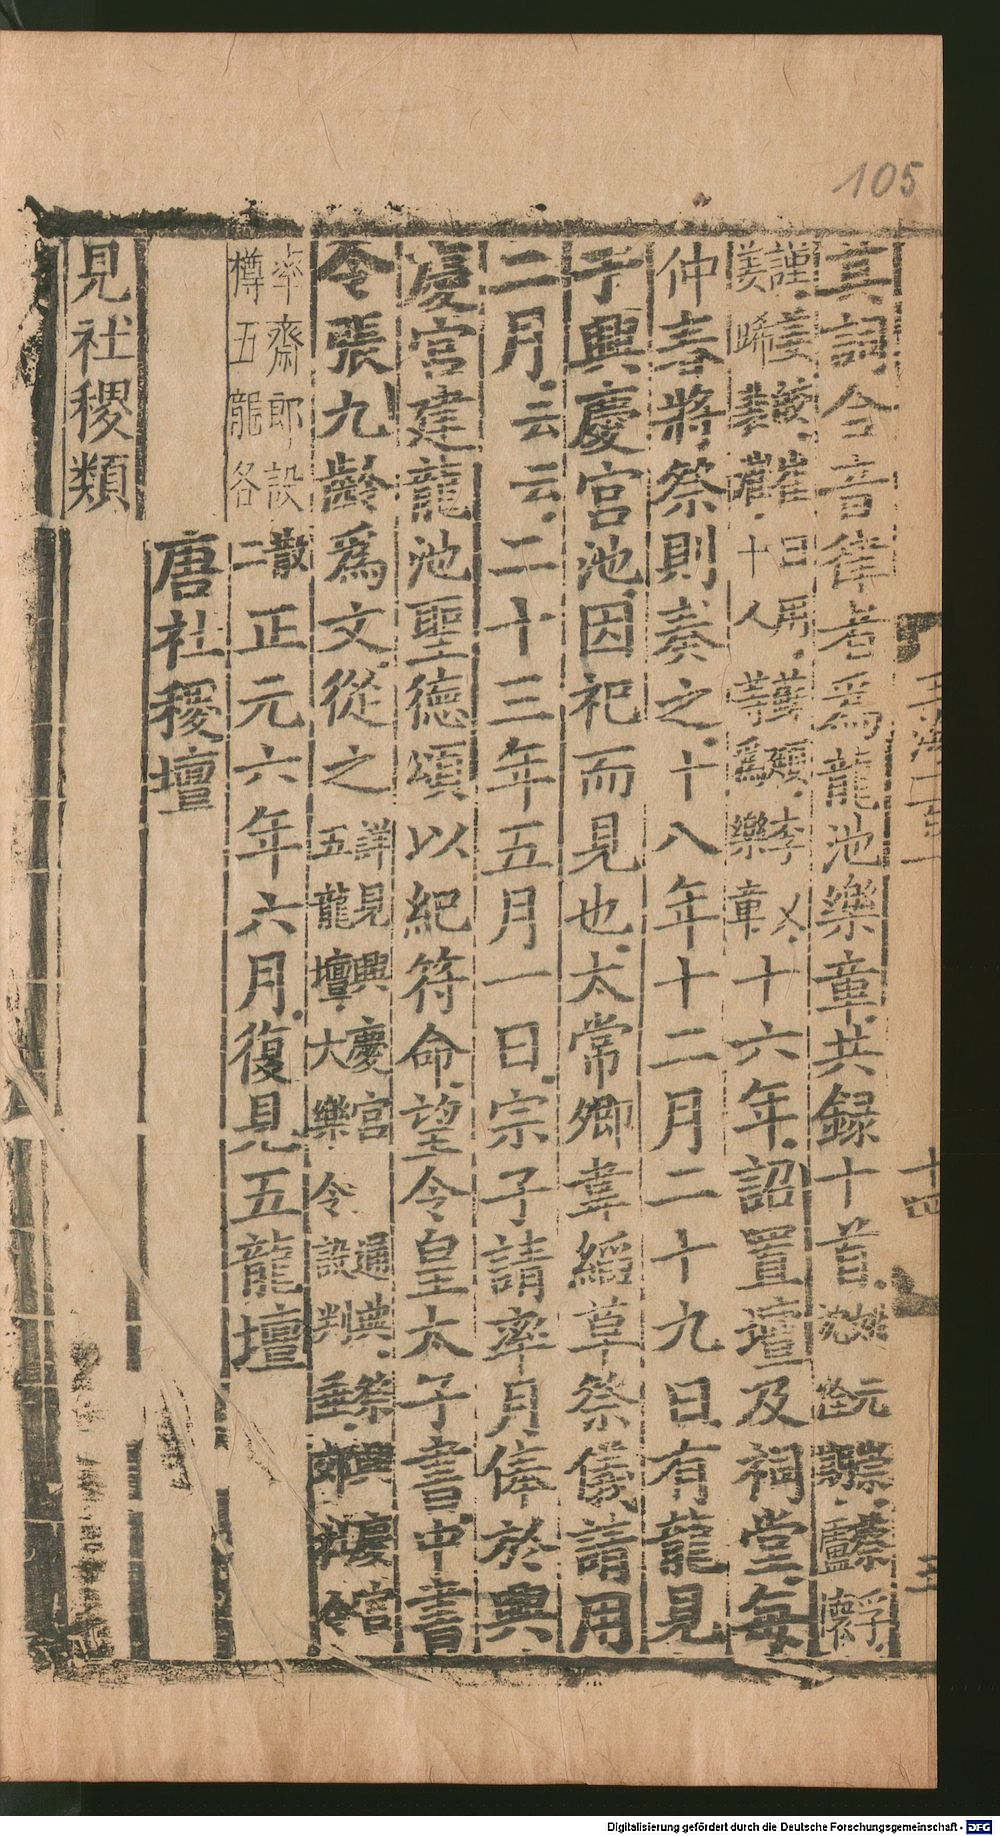 105
其詞合音律者爲龍池樂章共録十首
十六年詔置壇及祠堂每
仲春將祭則奏之十八年十二月二十九日有龍見
于興慶宫池因祀而見也太常卿韋縚草祭儀請用
二月云云二十三年五月一日宗子請率月俸於興
慶宫建龍池聖德頌以紀符命望令皇太子書中書
令張九齡爲文從之詳見興慶宫
五龍壇大樂令設判
率齋郎設
樽五龍各
散
二正元六年六月復見五龍壇
唐社稷壇
見社稷類
十四
Digitalisierung gefördert durch die Deutsche Forschungsgemeinschaft - DFG